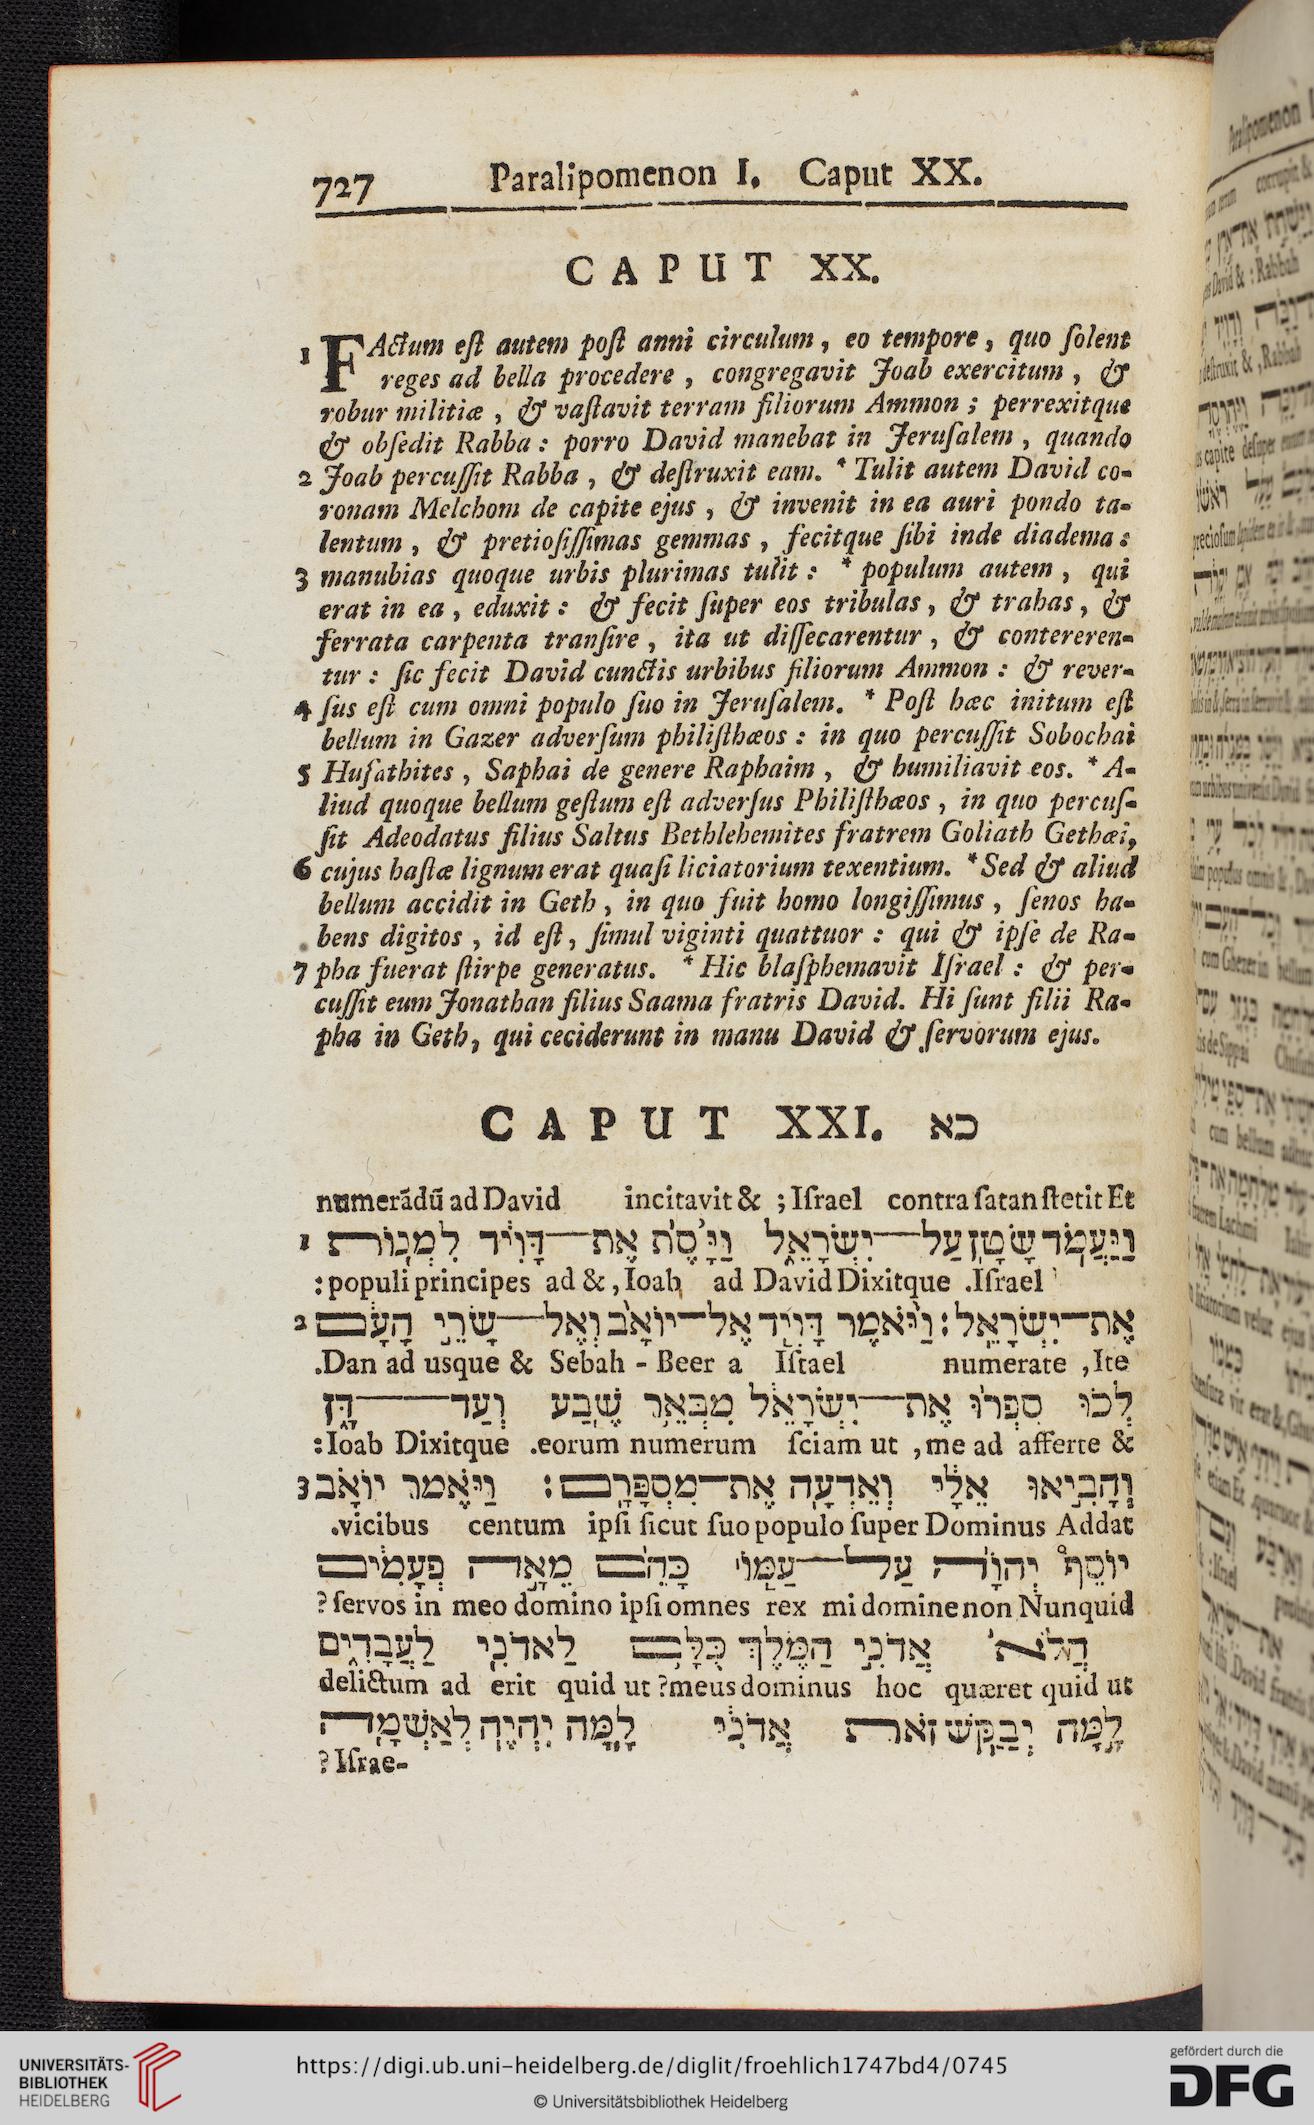 727 Paralipomenon I. Caput XX.
CAPUT XX.
1 FActum eſt autem poſt anni circulum, eo tempore, quo ſolent
reges ad bella procedere, congregavit Joab exercitum, &
robur militiæ, & vaſtavit terram filiorum Ammon; perrexitque
& obſedit Rabba: porro David manebat in Jeruſalem, quando
2 Joab percuſſit Rabba, & deſtruxit eam. * Tulit autem David co-
ronam Melchom de capite ejus, & invenit in ea auri pondo ta-
lentum, & pretioſiſſimas gemmas, fecitque ſibi inde diadema:
3 manubias quoque urbis plurimas tulit: * populum autem, qui
erat in ea, eduxit: & fecit ſuper eos tribulas, & trahas, &
ferrata carpenta tranſire, ita ut diſſecarentur, & contereren-
tur: ſic fecit David cunctis urbibus filiorum Ammon: & rever-
4 ſus eſt cum omni populo ſuo in Jeruſalem. * Poſt hæc initum eſt
bellum in Gazer adverſum philiſthæos: in quo percuſſit Sobochai
5 Huſathites, Saphai de genere Raphaim, & humiliavit eos. * A-
liud quoque bellum geſtum eſt adverſus Philiſthæos, in quo percuſ-
ſit Adeodatus filius Saltus Bethlehemites fratrem Goliath Gethæi,
6 cujus haſtæ lignum erat quaſi liciatorium texentium. * Sed & aliud
bellum accidit in Geth, in quo fuit homo longiſſimus, ſenos ha-
bens digitos, id eſt, ſimul viginti quattuor: qui & ipſe de Ra-
7 pha fuerat ſtirpe generatus. * Hic blaſphemavit Iſrael: & per-
cuſſit eum Jonathan filius Saama fratris David. Hi ſunt filii Ra-
pha in Geth, qui ceciderunt in manu David & ſervorum ejus.
CAPUT XXI. כא
numerãdũ ad David incitavit & ; Iſrael contra ſatan ſtetit Et
1 וַיַּעֲמֹד שָׂטָן עַל־יִשְׂרָאֵל וַיָּסֶת אֶת־דָּוִיד לִמְנוֹת
: populi principes ad & , Ioab ad David Dixitque .Iſrael
2 אֶת־יִשְׂרָאֵל׃ וַיֹּאמֶר דָּוִיד אֶל־יוֹאָב וְאֶל־שָׂרֵי הָעָם
.Dan ad usque & Sebah - Beer a Iſrael numerate , Ite
לְכוּ סִפְרוּ אֶת־יִשְׂרָאֵל מִבְּאֵר שֶׁבַע וְעַד־דָּן
: Ioab Dixitque .eorum numerum ſciam ut , me ad afferte &
3 וְהָבִיאוּ אֵלַי וְאֵדְעָה אֶת־מִסְפָּרָם׃ וַיֹּאמֶר יוֹאָב
.vicibus centum ipſi ſicut ſuo populo ſuper Dominus Addat
יוֹסֵף יְהוָה עַל־עַמּוֹ כָּהֵם מֵאָה פְעָמִים
? ſervos in meo domino ipſi omnes rex mi domine non Nunquid
הֲלֹא אֲדֹנִי הַמֶּלֶךְ כֻּלָּם לַאדֹנִי לַעֲבָדִים
delictum ad erit quid ut ? meus dominus hoc quæret quid ut
לָמָּה יְבַקֵּשׁ זֹאת אֲדֹנִי לָמָּה יִהְיֶה לְאַשְׁמָה
? Iſrae-
UNIVERSITÄTS-
BIBLIOTHEK
HEIDELBERG
https://digi.ub.uni-heidelberg.de/diglit/froehlich1747bd4/0745
© Universitätsbibliothek Heidelberg
gefördert durch die
DFG